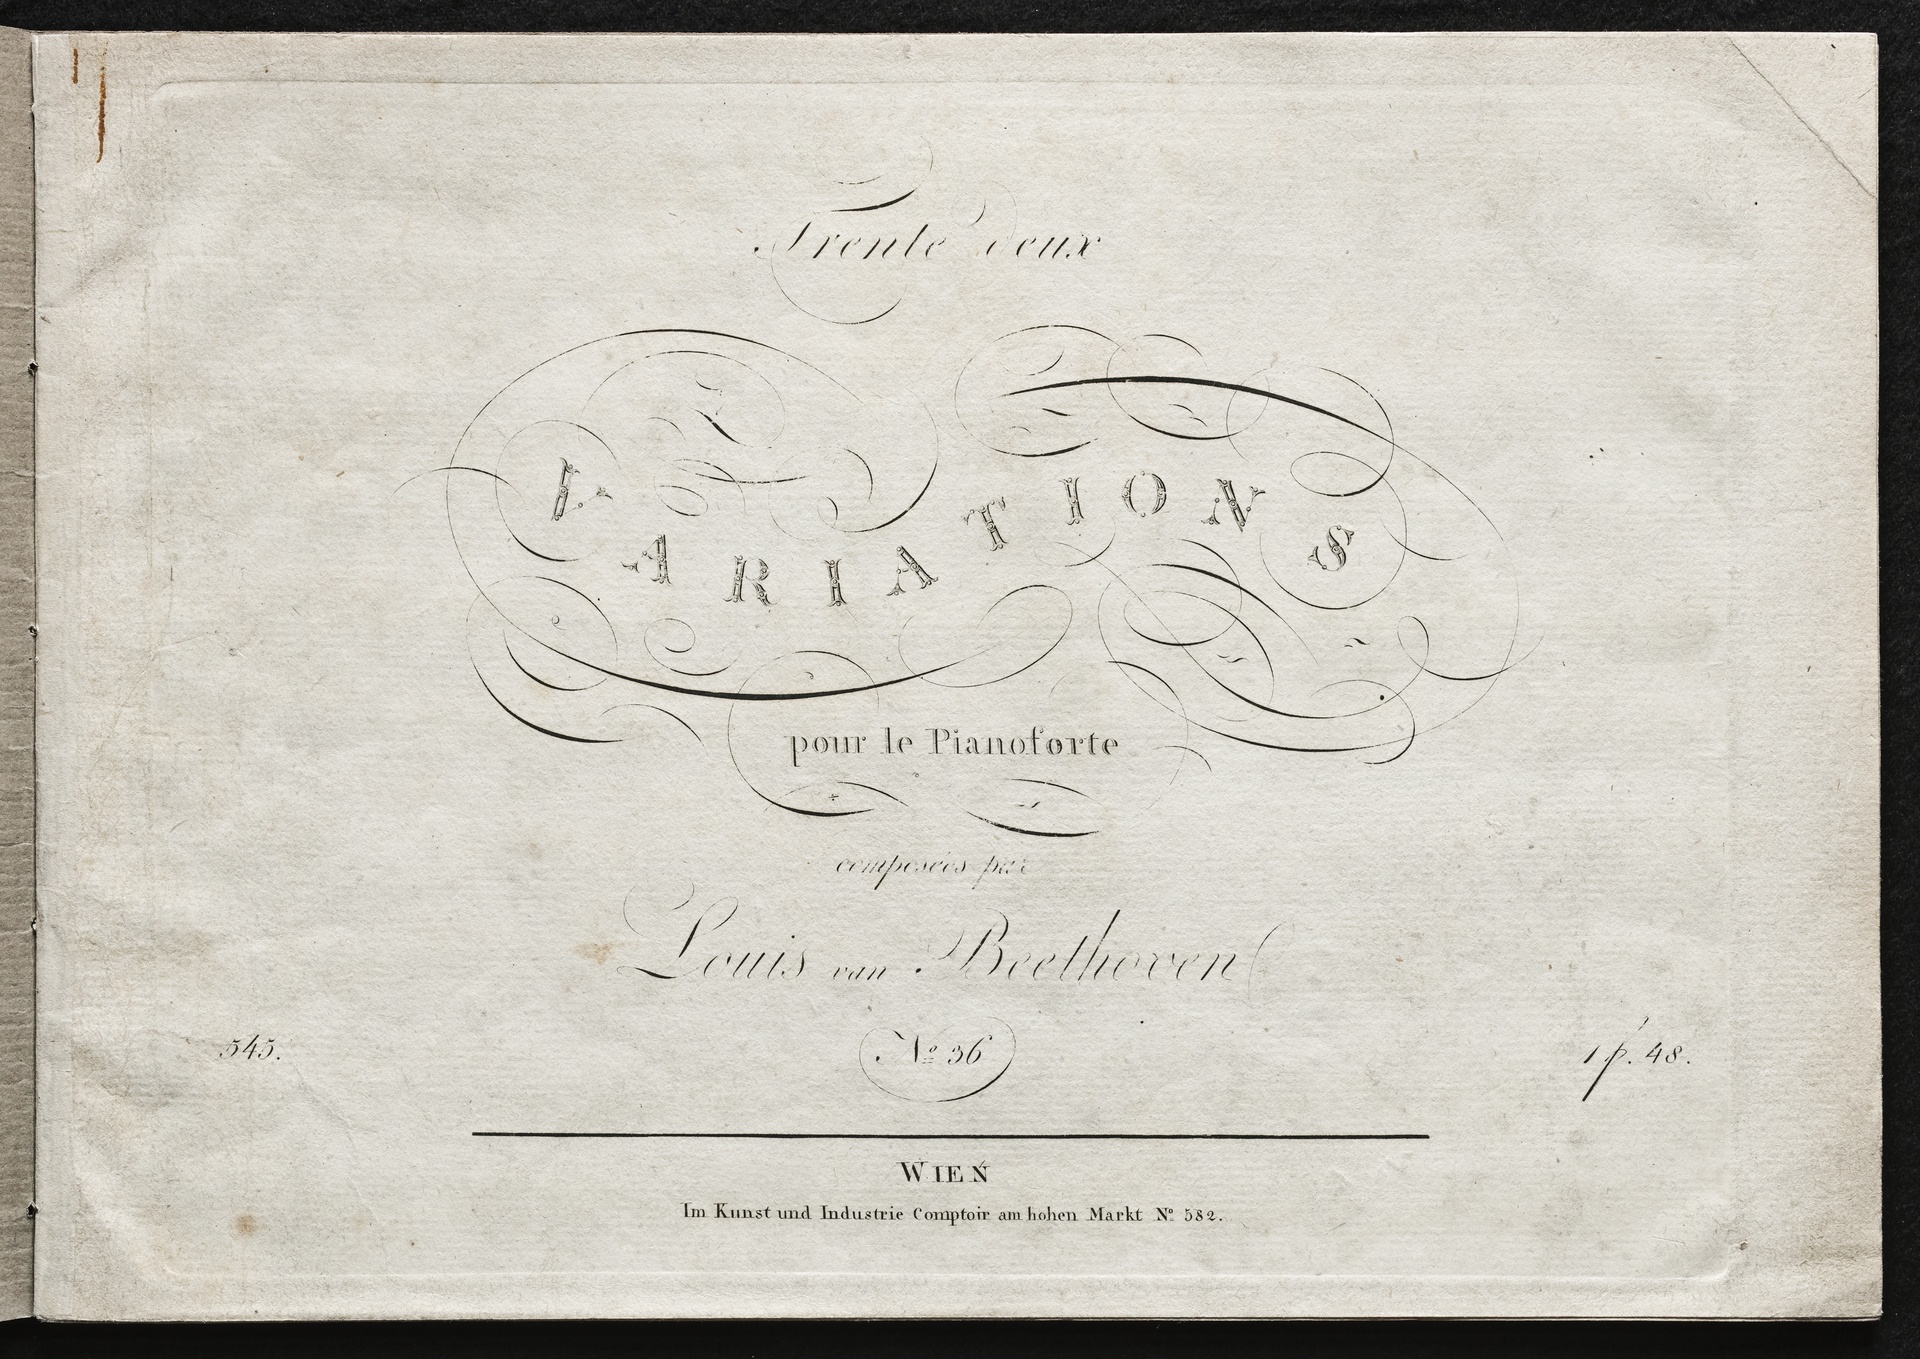 Trente deux
VARIATIONS
pour le Pianoforte
composées par
Louis van Beethoven
No 36
545.
1 f. 48.
WIEN
Im Kunst und Industrie Comptoir am hohen Markt No 582.